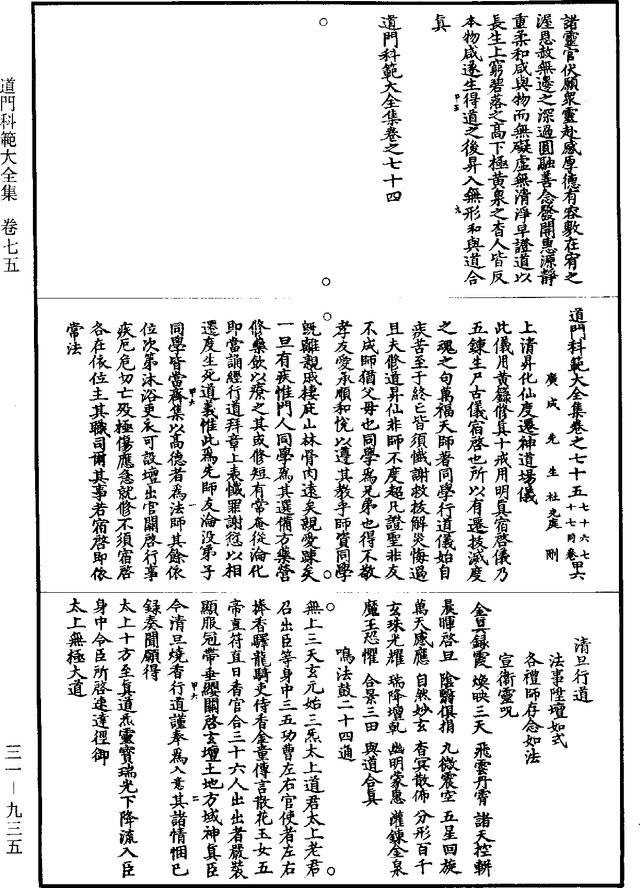 諸靈官伏願衆靈赴感厚德有容敷在宥之
渥恩赦無邊之深過圓融善念發開惠源靜
重柔和咸與物而無礙虛無清淨早證道以
長生上窮碧落之高下極黃泉之杳人皆反
本物咸遂生得道之後昇入無形和與道合
真
道門科範大全集卷之七十四
道門科範大全集卷之七十五
廣成先生杜光庭刪
上清昇化仙度遷神道場儀
此儀用黃籙修真十戒用明真宿啓儀乃
五鍊生尸古儀宿啓也所以有遷拔滅度
之魂之句萬福天師著同學行道儀始自
疾苦至于終亡皆須懺謝救拔解災悔過
且夫修道昇仙非師不度超凡證聖非友
不成師猶父母也同學爲兄弟也得不敬
孝友愛承順和悅以遵其教乎師資同學
旣離親戚棲庇山林骨肉遠矣親愛踈矣
一旦有疾惟門人同學爲其選備方藥營
修藥飲以療之其或修短有常奄從淪化
即當誦經行道拜章上表懺罪謝愆以相
遷度生死道義惟此爲先師友淪沒弟子
同學皆當齋集以高德者爲法師其餘依
位次第沐浴更衣可設壇出官關啓行事
疾厄危切亡歿極傷應急就修不須宿啓
各在依位主其職司爾其事若宿啓即依
常法
清旦行道
法事陞壇如式
各禮師存念如法
宣衛靈呪
金旦錄霞 煥映三天 飛雲丹霄 諸天控軿
晨暉啓旦 陰翳俱捐 九微震空 五星回旋
萬天感應 自然妙玄 香冥散佈 分形百千
玄珠光耀 瑞降壇乾 幽明蒙惠 灌鍊金泉
魔王恐懼 合景三田 與道合真
鳴法鼓二十四通
無上三天玄元始三炁太上道君太上老君
召出臣等身中三五功曹左右官使者左右
捧香驛龍騎吏侍香金童傳言散花玉女五
帝直符直日香官合三十六人出出者嚴裝
顯服冠帶垂纓關啓玄壇土地方域神真臣
今清旦燒香行道謹奉爲入意其諸情悃已
録奏聞願得
太上十方至真道炁靈寶瑞光下降流入臣
身中令臣所啓速達徑御
太上無極大道
道門科範大全集 卷七五
三一－九三五